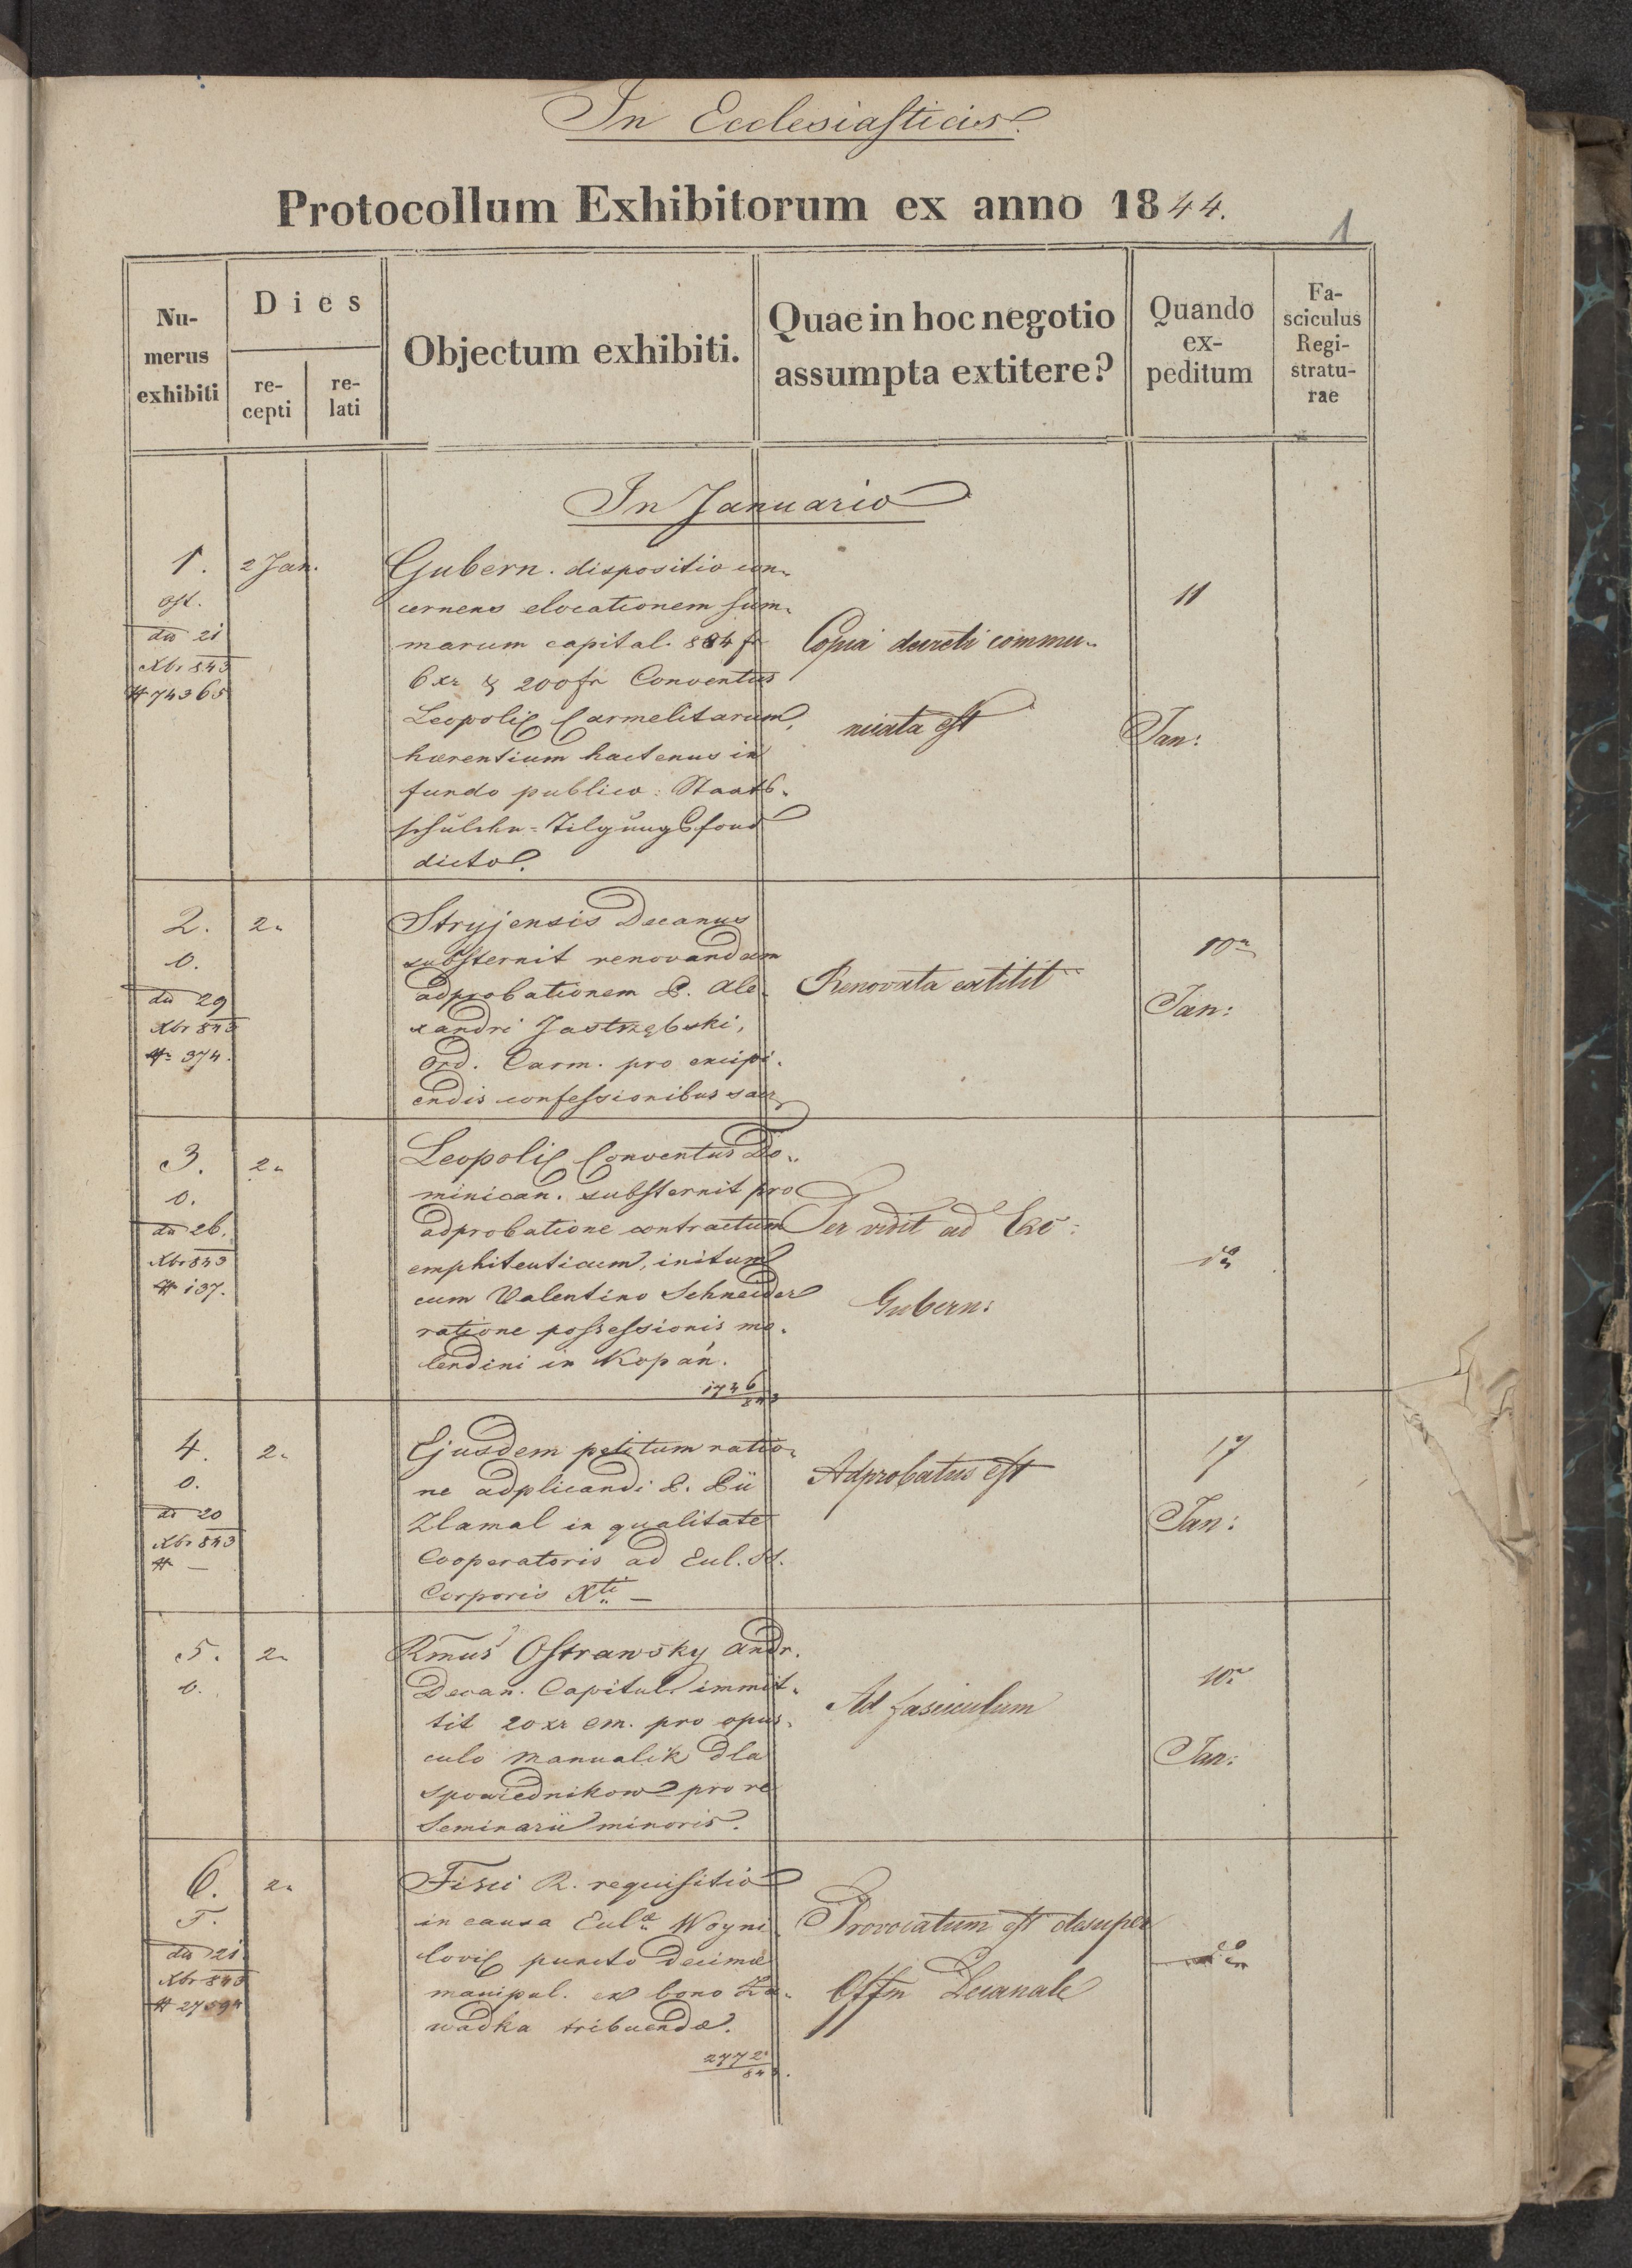 In Ecclesiasticis.
Protocollum Exhibitorum ex anno 1844.
1
Nu-
merus
exhibiti
Dies
re-
cepti
re-
lati
Objectum exhibiti.
Quae in hoc negotio
assumpta extitere?
Quando
ex-
peditum
Fa-
sciculus
Regi-
stratu-
rae
In Januario
1.
2 Jan.
dto 21
Xbr 843
# 74365
Gubern. dispositio con-
cernens elocationem sum-
marum capital. 884 fr
6 xr & 200 fr Conventus
Leopoli Carmelitarum,
hærentium hactenus in
fundo publico: Staats-
schulden-Tilgungsfond
dicto.
Copia decreti commu-
nicata est
11
Jan:
2.
0.
dto 29
Xbr 843
# 374.
2"
Stryjensis Decanus
substernit renovandam
adprobationem P. Ale-
xandri Jastrzębski,
Ord. Carm. pro excipi-
endis confessionibus sacr
Renovata extitit
10"
Jan:
3.
0.
dto 26.
Xbr 843
# 137.
2"
Leopoli Conventus Do-
minican. substernit pro
adprobatione contractum
emphiteuticum, initum
cum Valentino Schneider
ratione possessionis mo-
lendini in Kopań.
1736
843
vidit ad
Gubern:
4.
0.
dto 20
Xbr 843
# —
2"
Ejusdem petitum ratio-
ne adplicandi P. Pii
Zlamal in qualitate
Cooperatoris ad Eccl. SS.
Corporis Xti —
Adprobatus est
17
Jan:
5.
0.
2"
Rmus Ostrawsky Andr.
Decan. Capitul. immit-
tit 20 xr Cm. pro opus-
culo Manualik dla
spowiednikow pro re
Seminarii minoris.
Ad fasciculum
10"
Jan:
6.
F.
dto 21.
Xbr 843
# 27594
2"
Fisci R. requisitio
in causa Eccl Woyni
lovi puncto Decimæ
manipul. ex bono Za-
wadka tribuendæ.
2772
843.
Provocatum est desuper
Offm Decanale